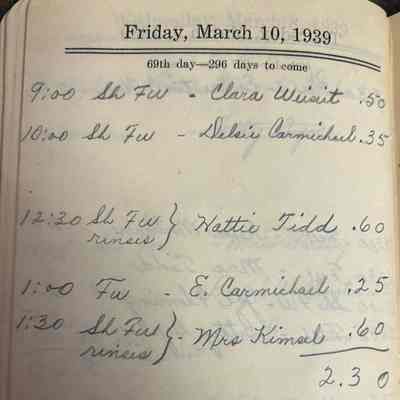 Friday, March 10, 1939
69th day—296 days to come
9:00 Sh Fw - Clara .50
10:00 Sh Fw - Delsie Carmichael .35
12:30 Sh Fw } Hattie Tidd .60
rinses
1:00 Fw - E. Carmichael .25
1:30 Sh Fw } - Mrs Kimsel .60
rinses
2.30